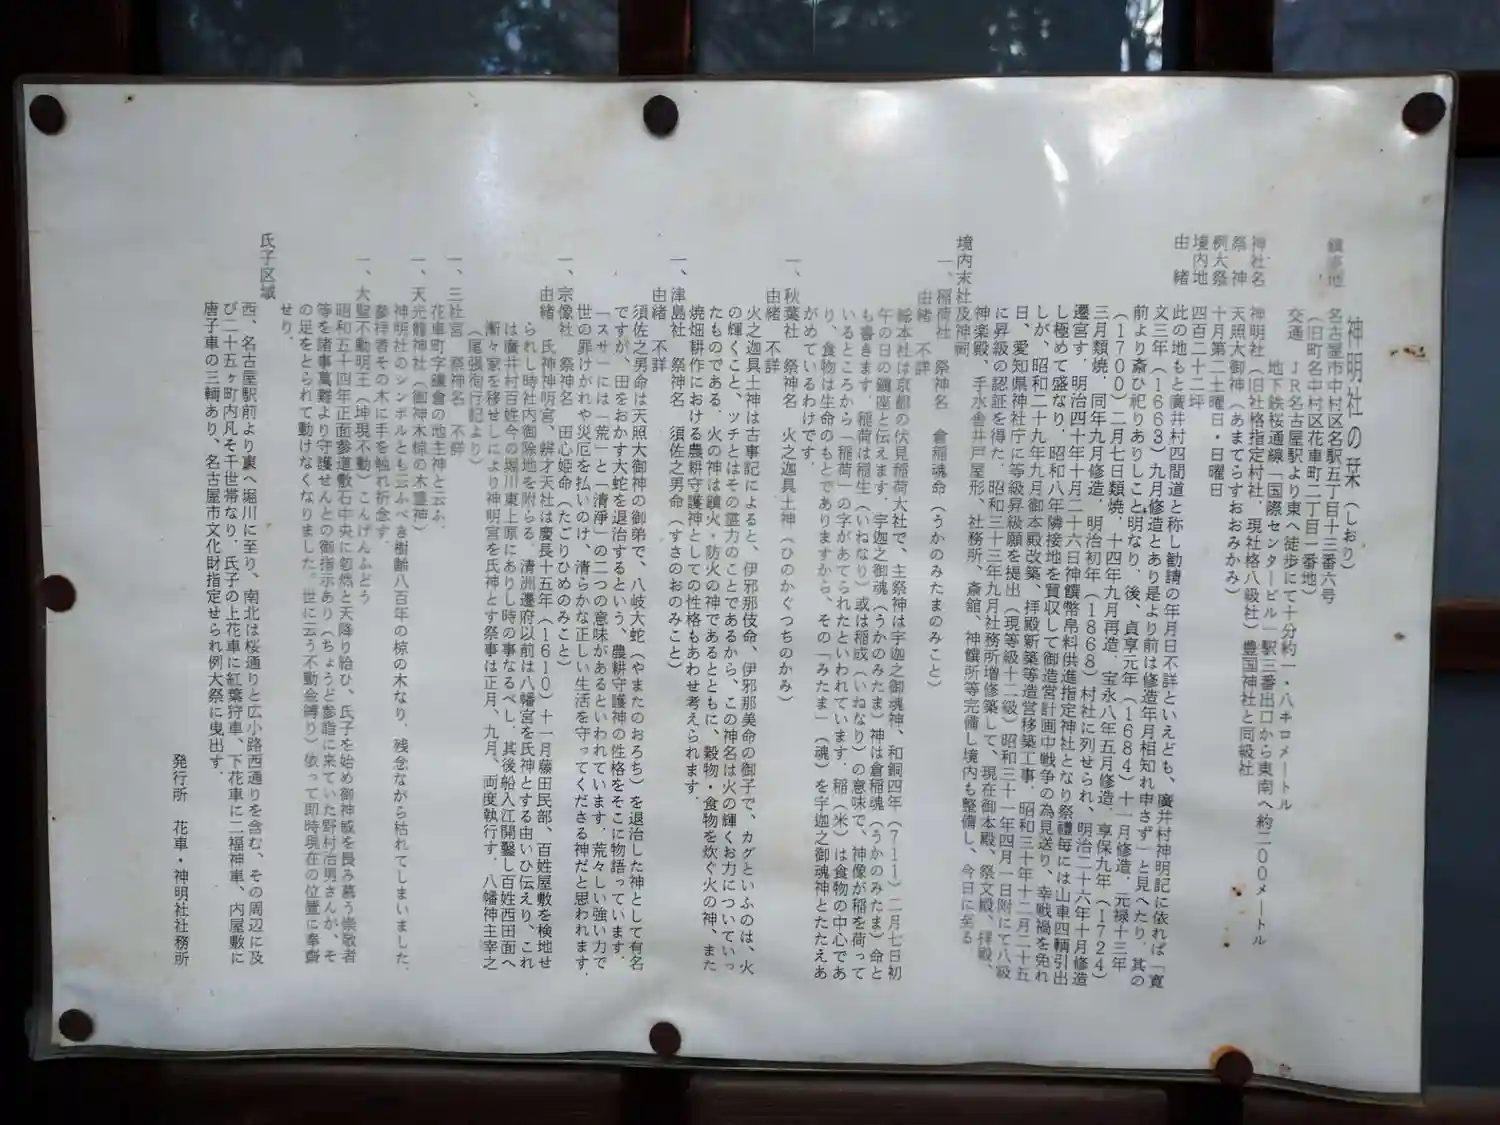 神明社の栞（しおり）
鎮座地　名古屋市中村区名駅五丁目十三番六号
（旧町名中村区花車町二丁目一番地）
交通　ＪＲ名古屋駅より東へ徒歩にて十分約一・八キロメートル
地下鉄桜通線「国際センタービル」駅三番出口から東南へ約二００メートル
神社名　神明社（旧社格指定村社、現社格八級社）豊国神社と同級社
祭　神　天照大御神（あまてらすおおみかみ）
例大祭　十月第二土曜日・日曜日
境内地　四百二十二坪
由　緒　此の地もと廣井村四間道と称し勧請の年月日不詳といえども、廣井村神明記に依れば「寛
文三年（１６６３）九月修造とあり是より前は修造年月相知れ申さず」と見へたり、其の
前より斎ひ祀りありしこと明なり、後、貞享元年（１６８４）十一月修造、元禄十三年
（１７００）二月七日類焼、十四年九月再造、宝永八年五月修造、享保九年（１７２４）
三月類焼、同年九月修造、明治初年（１８６８）村社に列せられ、明治二十六年十月修造
遷宮す。明治四十年十月二十六日神饌幣帛料供進指定神社となり祭禮毎には山車四輌引出
し極めて盛なり、昭和十八年隣接地を買収して御造営計画中戦争の為見送り、幸戦禍を免れ
しが、昭和二十九年九月御本殿改築、拝殿新築等造営移築工事、昭和三十年十二月二十五
日、愛知県神社庁に等級昇級願を提出（現等級十二級）昭和三十一年四月一日附にて八級
に昇級の認証を得た。昭和三十三年九月社務所増修築して、現在御本殿、祭文殿、拝殿、
神楽殿、手水舎井戸屋形、社務所、斎館、神饌所等完備し境内も整備し、今日に至る
境内末社及神祠
一、稲荷社　祭神名　倉稲魂命（うかのみたまのみこと）
由緒　不詳
総本社は京都の伏見稲荷大社で、主祭神は宇迦之御魂神、和銅四年（７１１）二月七日初
午の日の鎮座と伝えます。宇迦之御魂（うかのみたま）神は倉稲魂（うかのみたま）命と
も書きます。稲荷は稲生（いねなり）或は稲成（いねなり）の意味で、神像が稲を荷って
いるところから「稲荷」の字があてられたといわれています。稲（米）は食物の中心であ
り、食物は生命のもとでありますから、その「みたま」（魂）を宇迦之御魂神とたたえあ
がめているわけです。
一、秋葉社　祭神名　火之迦具土神（ひのかぐつちのかみ）
由緒　不詳
火之迦具土神は古事記によると、伊邪那伎命、伊邪那美命の御子で、カグといふのは、火
の輝くこと、ツチとはその霊力のことであるから、この神名は火の輝くお力についていっ
たものである。火の神は鎮火・防火の神であるとともに、穀物・食物を炊ぐ火の神、また
焼畑耕作における農耕守護神としての性格もあわせ考えられます。
一、津島社　祭神名　須佐之男命（すさのおのみこと）
由緒　不詳
須佐之男命は天照大御神の御弟で、八岐大蛇（やまたのおろち）を退治した神として有名
ですが、田をおかす大蛇を退治するという、農耕守護神の性格をそこに物語っています。
「スサ」には「荒」と「清浄」の二つの意味があるといわれています。荒々しい強い力で
世の罪けがれや災厄を払いのけ、清らかな正しい生活を守ってくださる神だと思われます。
一、宗像社　祭神名　田心姫命（たごりひめのみこと）
由緒　氏神神明宮、辨才天社は慶長十五年（１６１０）十一月藤田民部、百姓屋敷を検地せ
られし時社内御除地を附らる。清洲遷府以前は八幡宮を氏神とする由いひ伝えり、これ
は廣井村百姓今の堀川東上原にありし時の事なるべし、其後船入江開鑿し百姓西田面へ
漸々家を移せしにより神明宮を氏神とす祭事は正月、九月、両度執行す。八幡神主宰之
（尾張徇行記より）
一、三社宮　祭神名　不詳
花車町字護倉の地主神と云ふ、
一、天光龍神社（御神木椋の木霊神）
神明社のシンボルとも云ふべき樹齢八百年の椋の木なり、残念ながら枯れてしまいました、
参拝者その木に手を触れ祈念す。
一、大聖不動明王（坤現不動）こんげんふどう
昭和五十四年正面参道敷石中央に忽然と天降り給ひ、氏子を始め御神威を畏み慕う崇敬者
等を諸事萬難より守護せんとの御指示あり（ちょうど参詣に来ていた野村治男さんが、そ
の足をとられて動けなくなりました。世に云う不動金縛り）依って即時現在の位置に奉齋
せり。
氏子区域
西、名古屋駅前より東へ堀川に至り、南北は桜通りと広小路西通りを含む、その周辺に及
び二十五ヶ町内凡そ千世帯なり、氏子の上花車に紅葉狩車、下花車に二福神車、内屋敷に
唐子車の三輌あり、名古屋市文化財指定せられ例大祭に曳出す。
発行所　花車・神明社社務所